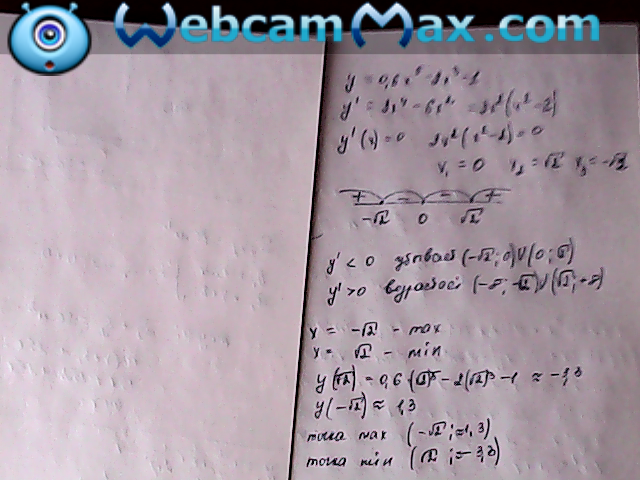 WebcamMax.com
y = 0,6x⁵ - 2x³ - 1
y' = 3x⁴ - 6x² = 3x²(x² - 2)
y'(x) = 0 3x²(x² - 2) = 0
x₁ = 0 x₂ = √2 x₃ = -√2
+ - - +
-√2 0 √2
y' < 0 убывает (-√2; 0)∪(0; √2)
y' > 0 возрастает (-∞; -√2)∪(√2; +∞)
x = -√2 - max
x = √2 - min
y(√2) = 0,6·(√2)⁵ - 2(√2)³ - 1 ≈ -3,3
y(-√2) ≈ 1,3
точка max (-√2; ≈1,3)
точка min (√2; ≈-3,3)